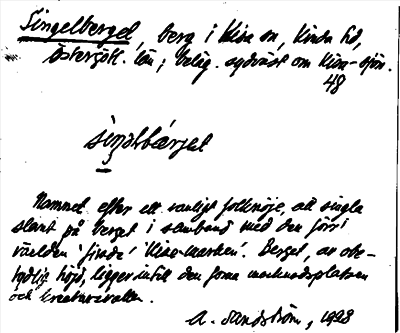 Singelberget, berg i Kisa sn, Kinda hd,
Östergötl. län; beläg. sydväst om Kisa-sjön.
48
siŋəlbärjet
Namnet efter ett vanligt folknöje, att singla
slant på berget i samband med den förr i
världen "firade" "Kisa-marken". Berget, av obe-
tydlig höjd, ligger intill den forna marknadsplatsen
och kreatursvallen.
A. Sandström, 1928